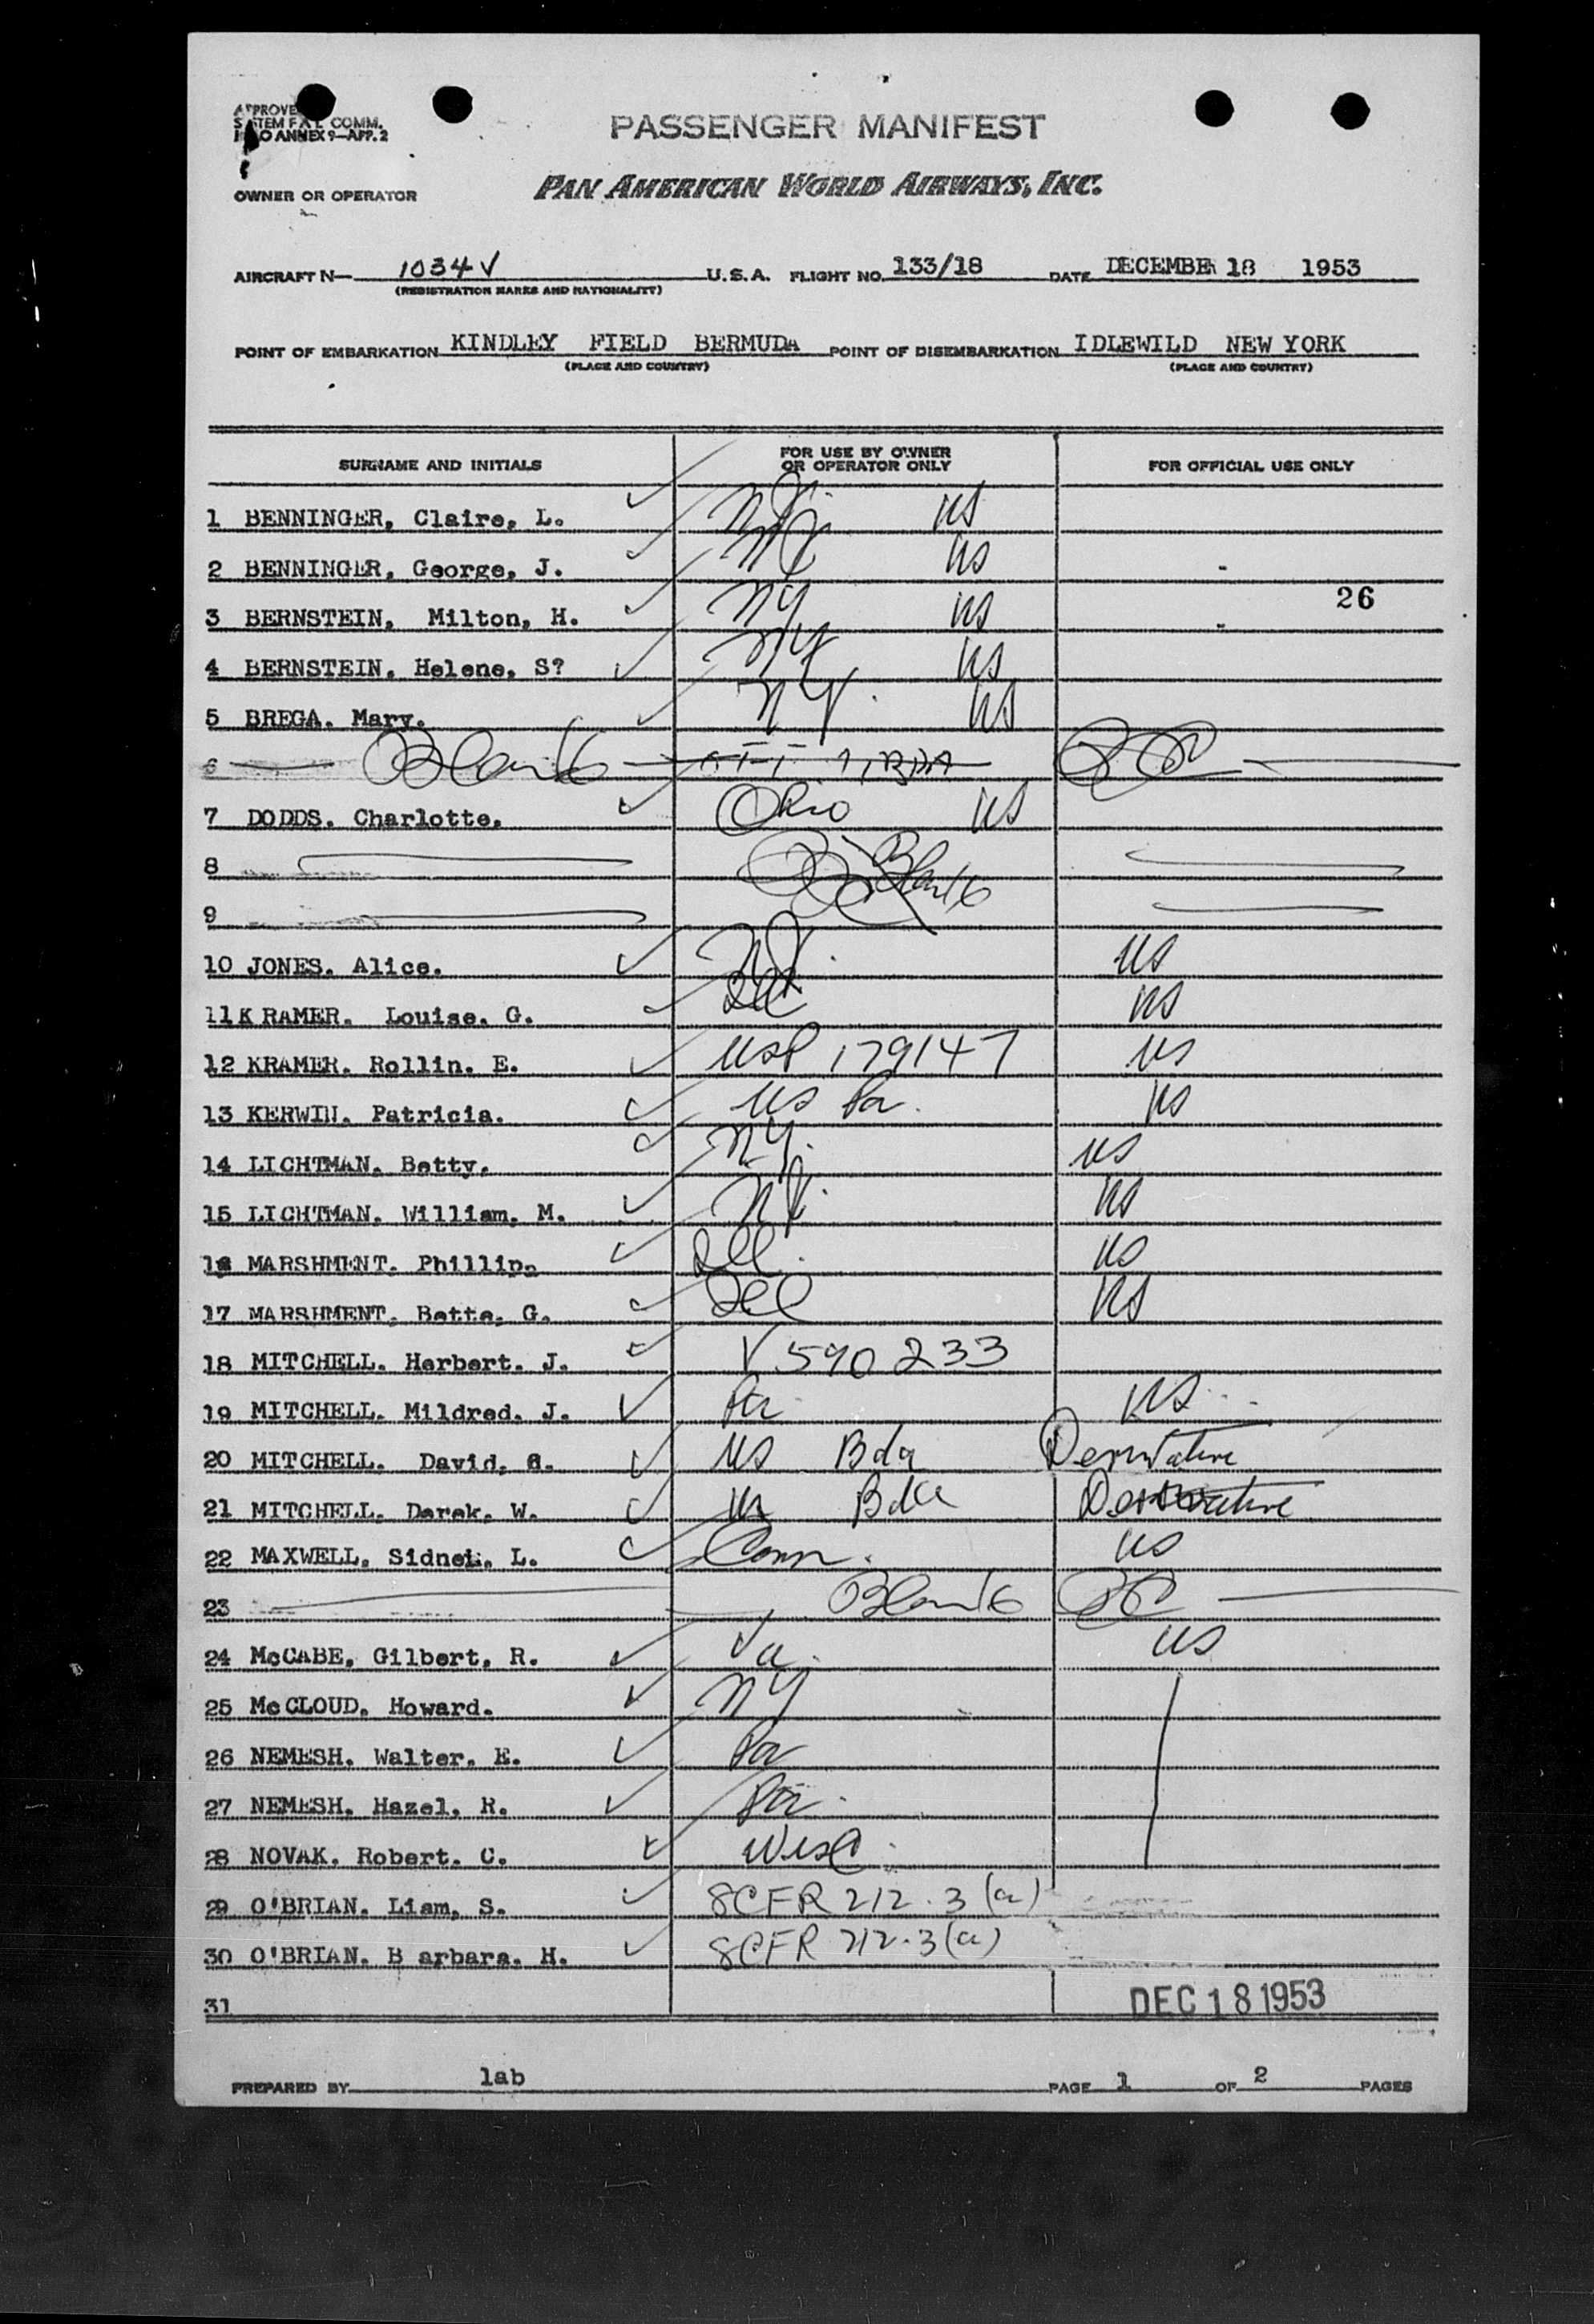 APPROVE
SYSTEM F A L COMM.
ICAO ANNEX 9—APP. 2
PASSENGER MANIFEST
OWNER OR OPERATOR PAN AMERICAN WORLD AIRWAYS, INC.
AIRCRAFT N— 1034V U.S.A. FLIGHT NO. 133/18 DATE DECEMBER 18 1953
(REGISTRATION MARKS AND NATIONALITY)
POINT OF EMBARKATION KINDLEY FIELD BERMUDA POINT OF DISEMBARKATION IDLEWILD NEW YORK
(PLACE AND COUNTRY) (PLACE AND COUNTRY)
SURNAME AND INITIALS FOR USE BY OWNER OR OPERATOR ONLY FOR OFFICIAL USE ONLY
1 BENNINGER, Claire, L. US
2 BENNINGER, George, J. US
26
3 BERNSTEIN, Milton, H. NY US
4 BERNSTEIN. Helene, S? NY US
5 BREGA. Mary. NY. US
6 Blank
7 DODDS. Charlotte. Ohio US
8 Blank
9
10 JONES. Alice. US
11 K RAMER. Louise. G. US
12 KRAMER. Rollin. E. USP 179147 US
13 KERWIN. Patricia. US Pa. US
14 LICHTMAN. Betty. NY. US
15 LICHTMAN. William, M. US
16 MARSHMENT. Phillip. Del. US
17 MARSHMENT. Bette. G. Del US
18 MITCHELL. Herbert. J. V590233
19 MITCHELL. Mildred. J. Pa US
20 MITCHELL. David. US Bda Derivative
21 MITCHELL. Derek. W. US Bda Derivative
22 MAXWELL, Sidnei, L. Conn. US
23 Blank
24 McCABE, Gilbert, R. Va. US
25 McCLOUD. Howard. NY
26 NEMESH. Walter. E. Pa
27 NEMESH. Hazel. R. Pa.
28 NOVAK. Robert. C. Wisc.
29 O'BRIAN. Liam, S. 8CFR 212.3(a)
30 O'BRIAN. B arbara. H. 8CFR 212.3(a)
31 DEC 18 1953
PREPARED BY lab PAGE 1 OF 2 PAGES